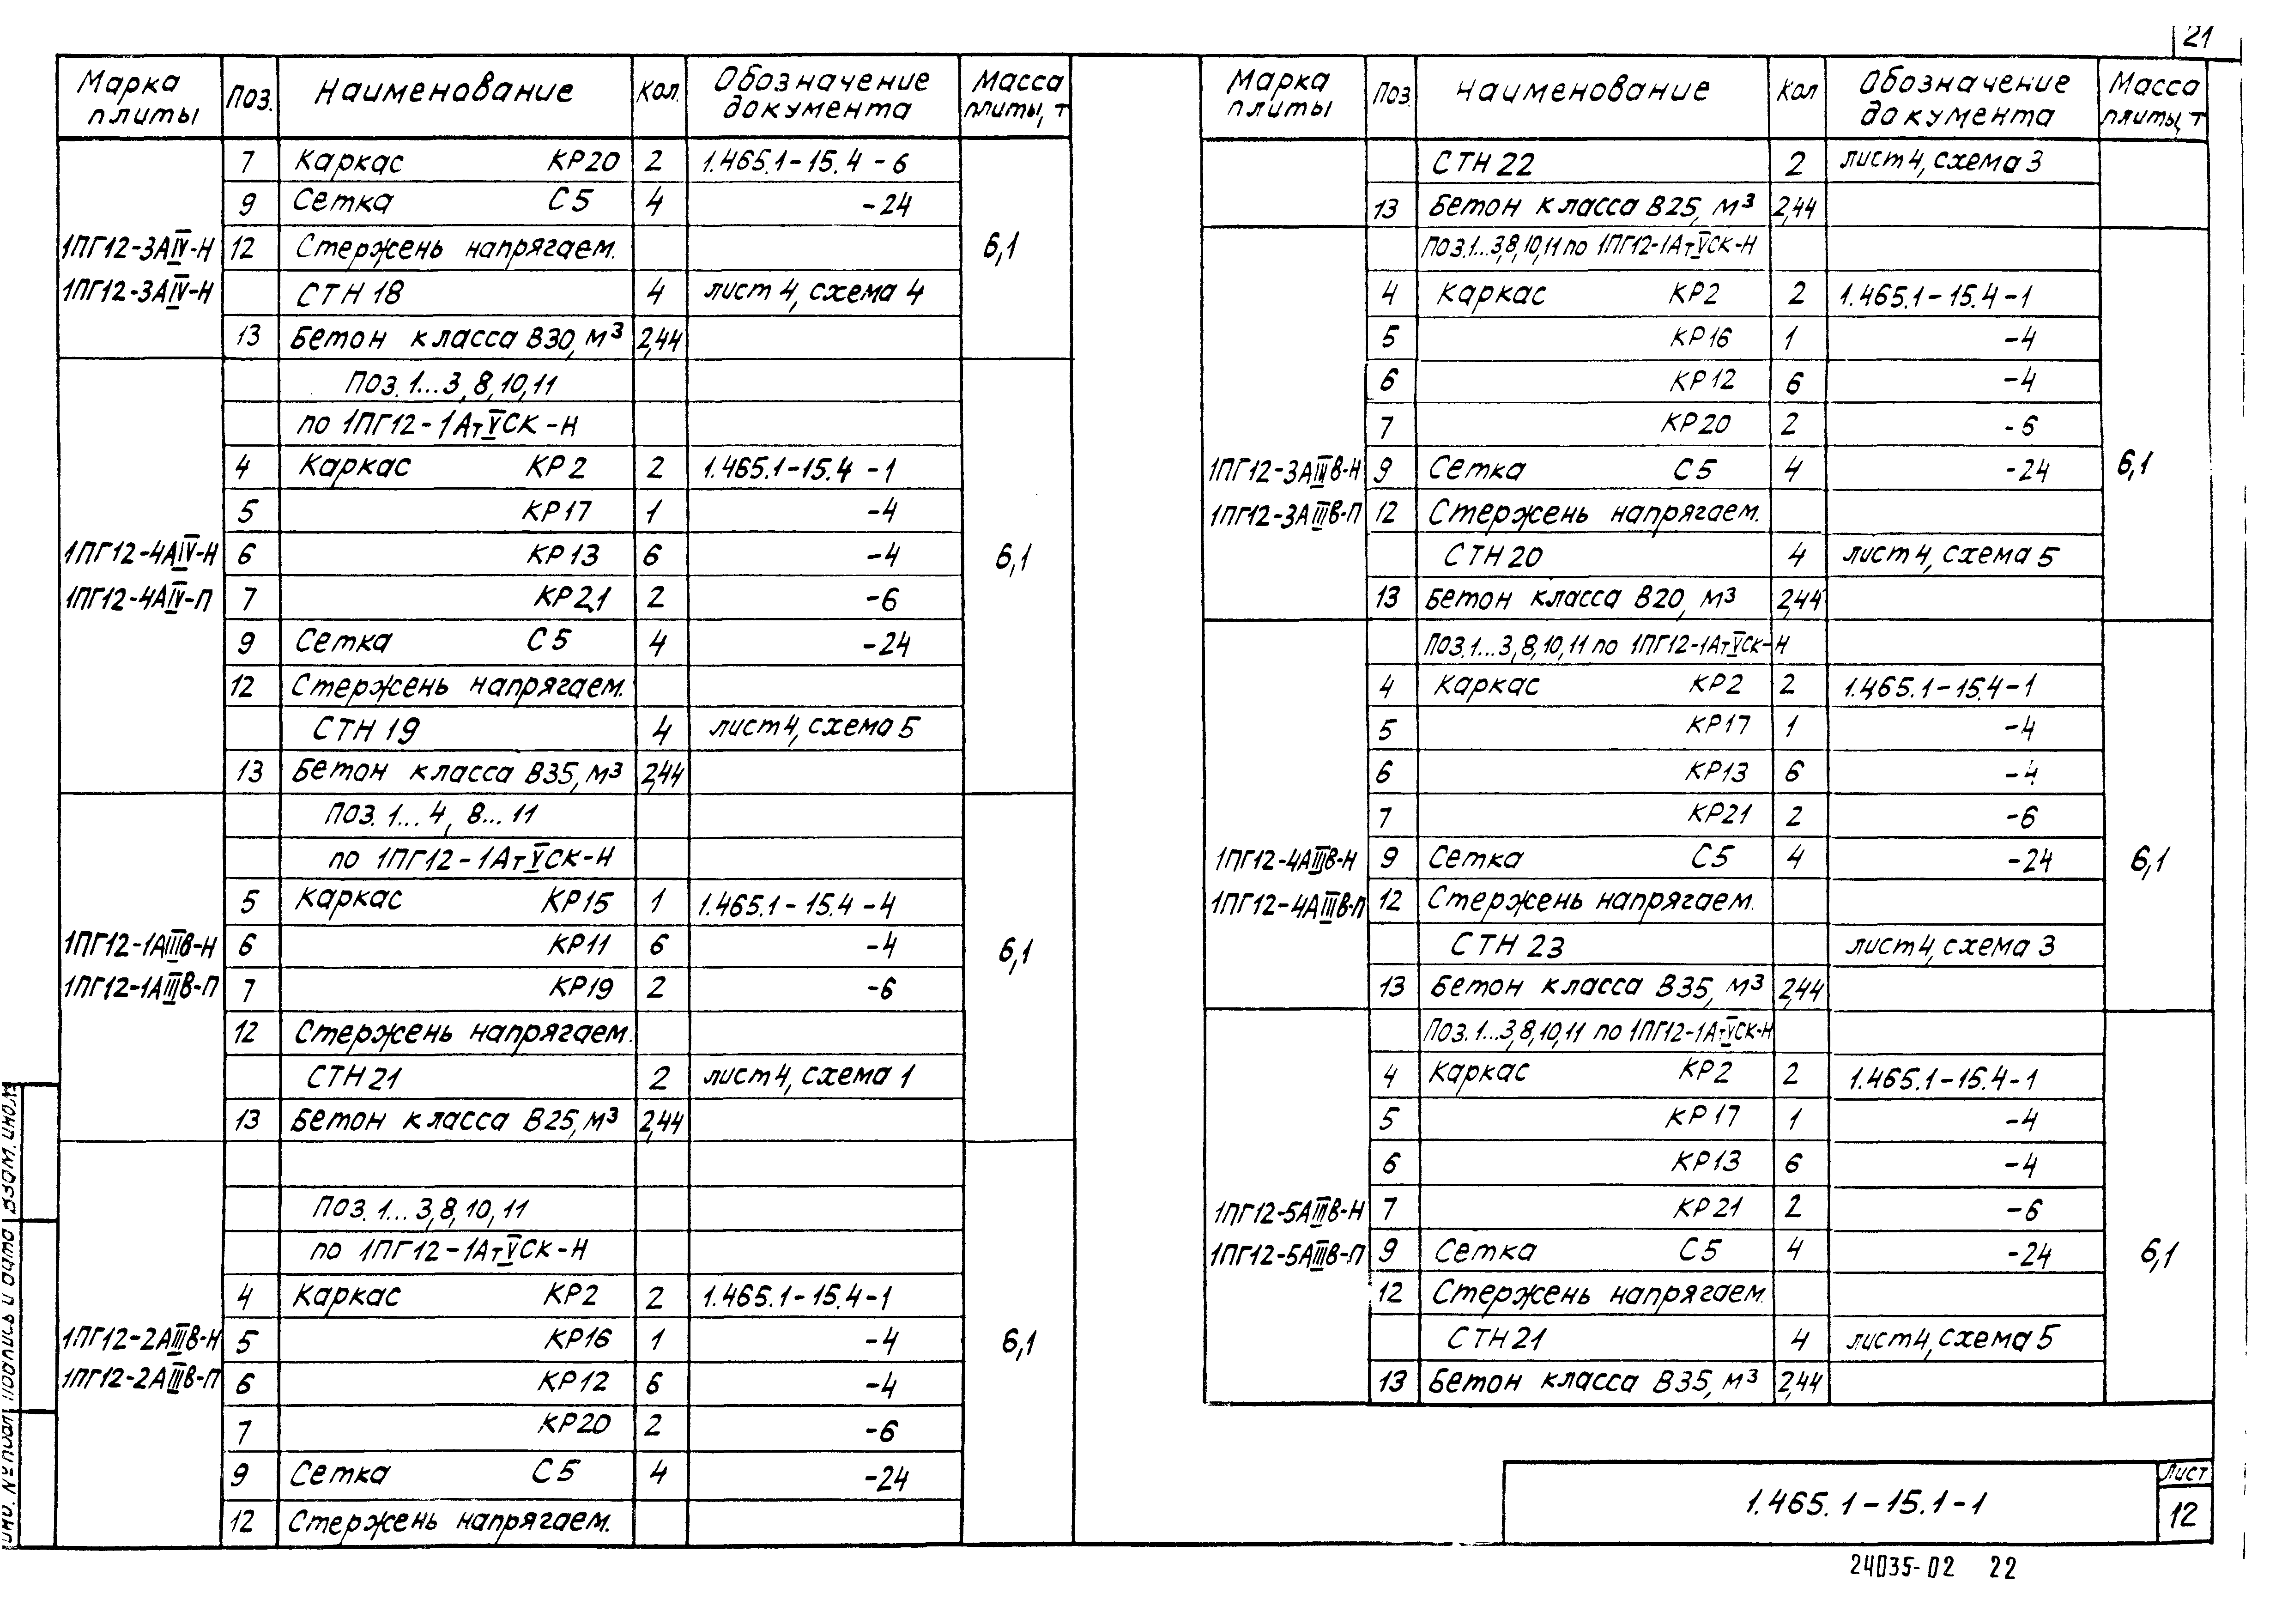 21
Марка плиты | Поз. | Наименование | Кол. | Обозначение документа | Масса плиты, т
7 | Каркас КР20 | 2 | 1.465.1-15.4-6
9 | Сетка С5 | 4 | -24
1ПГ12-3АIV-Н | 12 | Стержень напрягаем. | 6,1
1ПГ12-3АIV-Н | СТН 18 | 4 | лист 4, схема 4
13 | Бетон класса В30, м³ | 2,44
Поз. 1...3, 8, 10, 11
по 1ПГ12-1АтVСК-Н
4 | Каркас КР2 | 2 | 1.465.1-15.4-1
5 | КР17 | 1 | -4
1ПГ12-4АIV-Н | 6 | КР13 | 6 | -4 | 6,1
1ПГ12-4АIV-П | 7 | КР21 | 2 | -6
9 | Сетка С5 | 4 | -24
12 | Стержень напрягаем.
СТН 19 | 4 | лист 4, схема 5
13 | Бетон класса В35, м³ | 2,44
Поз. 1...4, 8...11
по 1ПГ12-1АтVСК-Н
5 | Каркас КР15 | 1 | 1.465.1-15.4-4
1ПГ12-1АIIIВ-Н | 6 | КР11 | 6 | -4 | 6,1
1ПГ12-1АIIIВ-П | 7 | КР19 | 2 | -6
12 | Стержень напрягаем.
СТН 21 | 2 | лист 4, схема 1
13 | Бетон класса В25, м³ | 2,44
Поз. 1...3, 8, 10, 11
по 1ПГ12-1АтVСК-Н
4 | Каркас КР2 | 2 | 1.465.1-15.4-1
1ПГ12-2АIIIВ-Н | 5 | КР16 | 1 | -4 | 6,1
1ПГ12-2АIIIВ-П | 6 | КР12 | 6 | -4
7 | КР20 | 2 | -6
9 | Сетка С5 | 4 | -24
12 | Стержень напрягаем.
Марка плиты | Поз. | Наименование | Кол | Обозначение документа | Масса плиты, т
СТН 22 | 2 | лист 4, схема 3
13 | Бетон класса В25, м³ | 2,44
Поз. 1...3, 8, 10, 11 по 1ПГ12-1АтVСК-Н
4 | Каркас КР2 | 2 | 1.465.1-15.4-1
5 | КР16 | 1 | -4
6 | КР12 | 6 | -4
7 | КР20 | 2 | -6
1ПГ12-3АIIIВ-Н | 9 | Сетка С5 | 4 | -24 | 6,1
1ПГ12-3АIIIВ-П | 12 | Стержень напрягаем.
СТН 20 | 4 | лист 4, схема 5
13 | Бетон класса В20, м³ | 2,44
Поз. 1...3, 8, 10, 11 по 1ПГ12-1АтVСК-Н
4 | Каркас КР2 | 2 | 1.465.1-15.4-1
5 | КР17 | 1 | -4
6 | КР13 | 6 | -4
7 | КР21 | 2 | -6
1ПГ12-4АIIIВ-Н | 9 | Сетка С5 | 4 | -24 | 6,1
1ПГ12-4АIIIВ-П | 12 | Стержень напрягаем.
СТН 23 | лист 4, схема 3
13 | Бетон класса В35, м³ | 2,44
Поз. 1...3, 8, 10, 11 по 1ПГ12-1АтVСК-Н
4 | Каркас КР2 | 2 | 1.465.1-15.4-1
5 | КР17 | 1 | -4
6 | КР13 | 6 | -4
1ПГ12-5АIIIВ-Н | 7 | КР21 | 2 | -6
1ПГ12-5АIIIВ-П | 9 | Сетка С5 | 4 | -24 | 6,1
12 | Стержень напрягаем.
СТН 21 | 4 | лист 4, схема 5
13 | Бетон класса В35, м³ | 2,44
1.465.1-15.1-1
Лист
12
24035-02 22
Инв. № подл. Подпись и дата Взам. инв. №